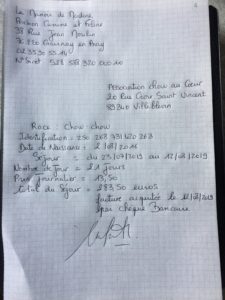 Le Manoir de Nadine
Pension Canine et Féline
38 Rue Jean Moulin
76 220 Gournay en Bray
02 35 90 55 14
N° Siret
Association Chow au Coeur
20 Rue Croix Saint Vincent
89340 Villeblevin
Race : Chow-chow
Identification : 250 268 731 420 263
Date de Naissance : 2/08/2016
Séjour = du 23/07/2019 au 12/08/2019
Nombre de Jour = 21 Jours
Prix Journalier = 13,50
Total du Séjour = 283,50 euros
facture acquittée le 12/08/2019
par chèque Bancaire